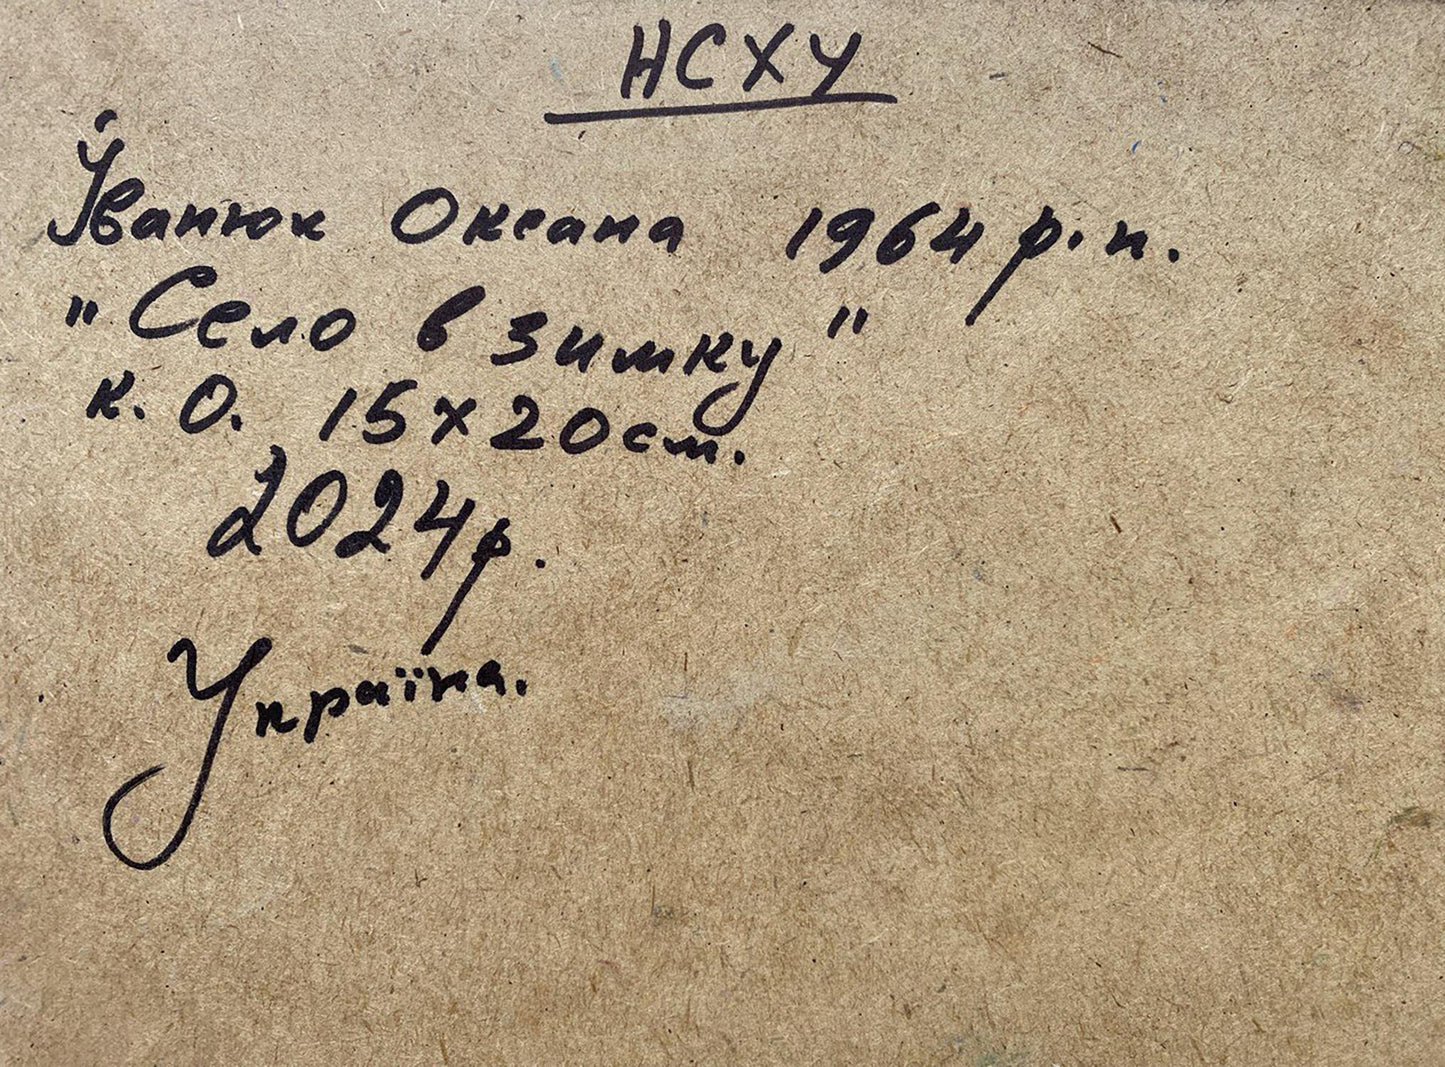 НСХУ
Іванюк Оксана 1964 р.н.
"Село в зимку"
к. О. 15х20см.
2024р.
Україна.